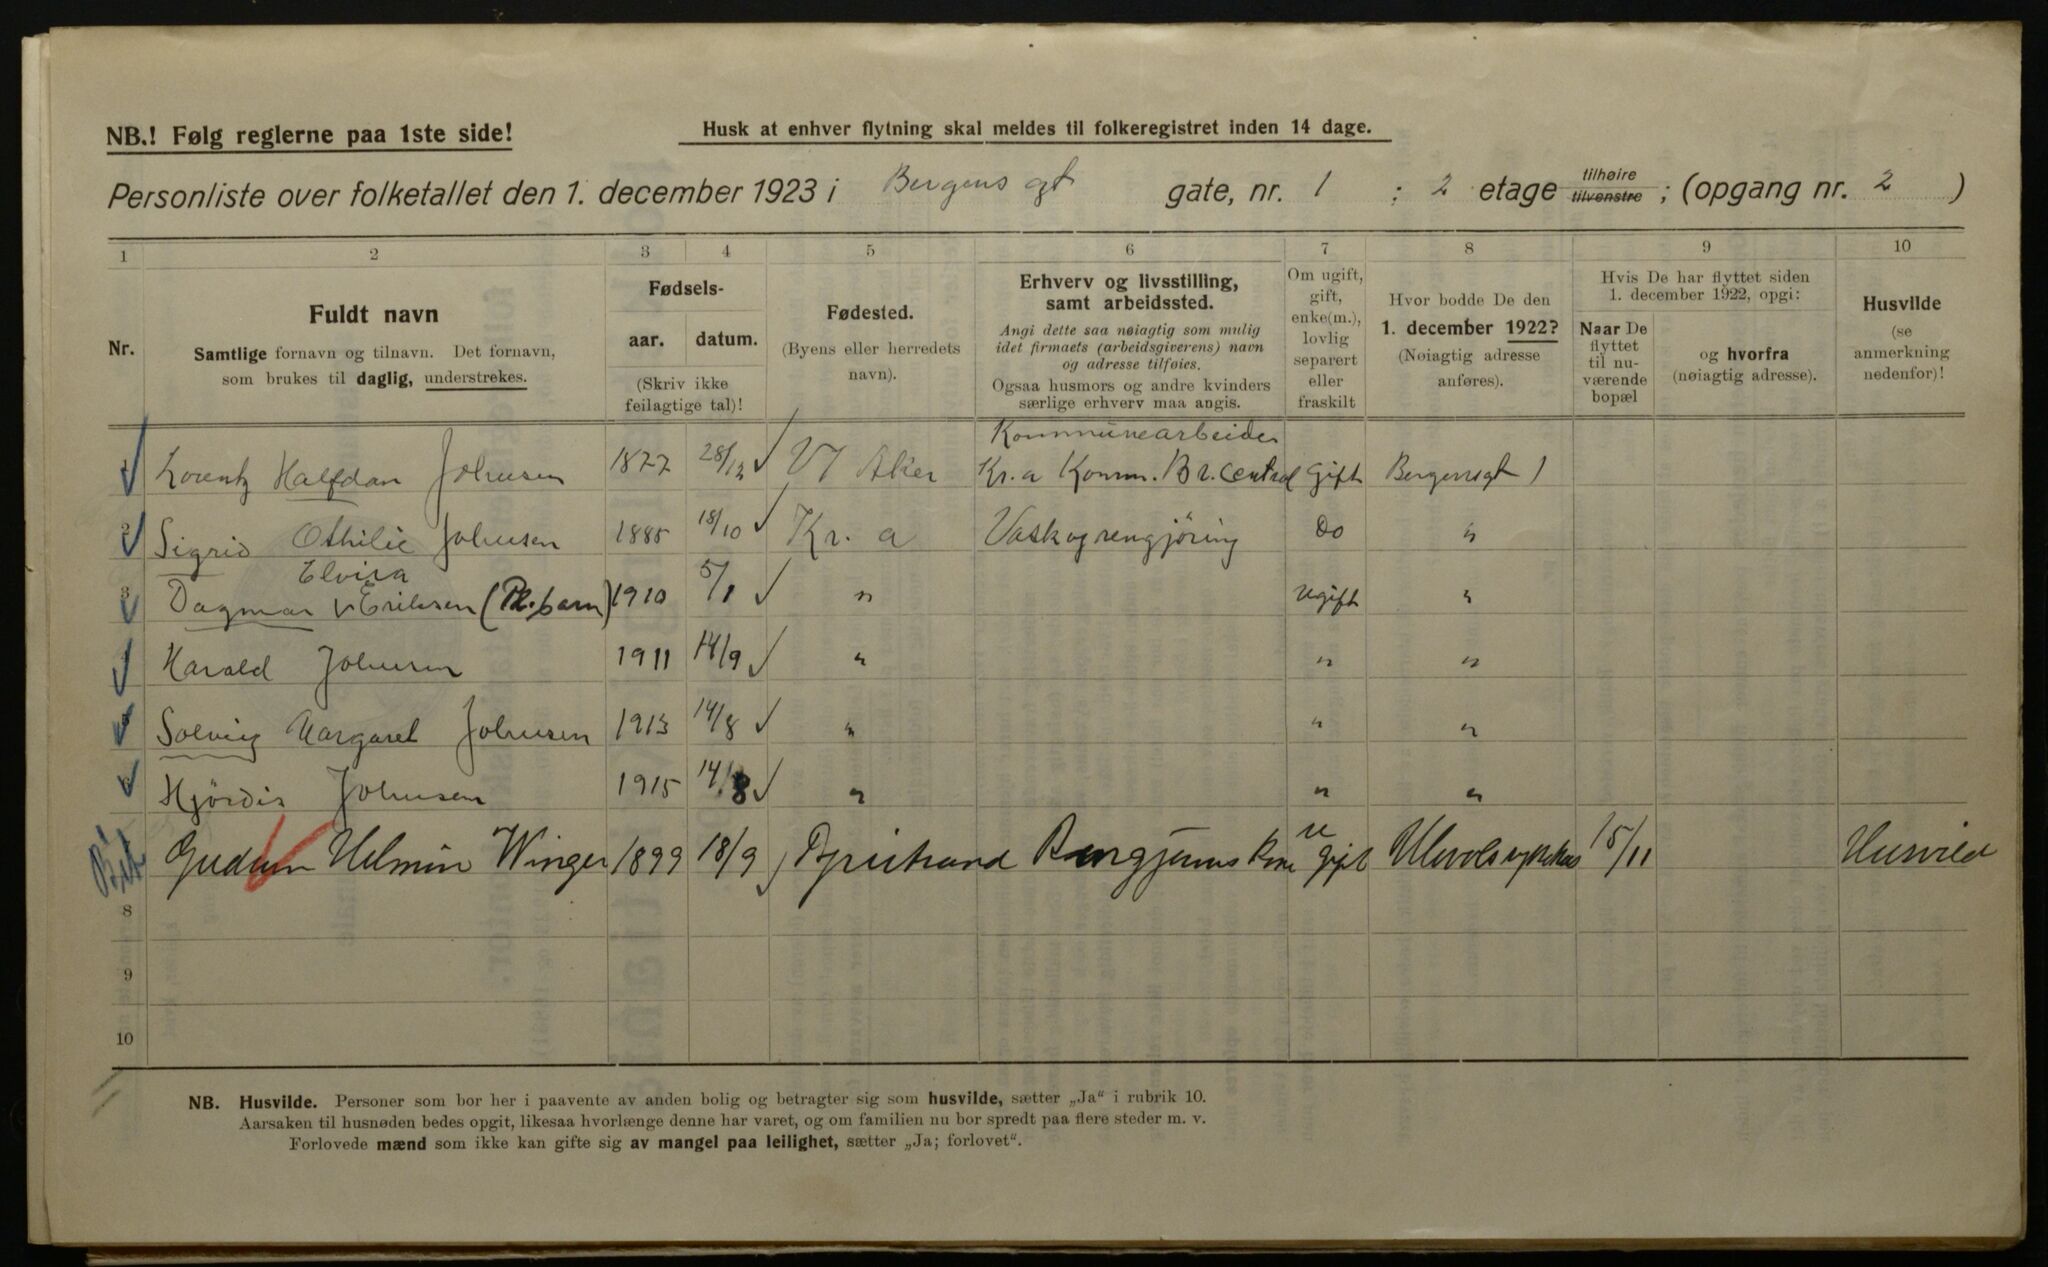 NB.! Følg reglerne paa 1ste side!
Husk at enhver flytning skal meldes til folkeregistret inden 14 dage.
Personliste over folketallet den 1. december 1923 i Bergens gt gate, nr. 1 ; 2 etage tilhøire tilvenstre ; (opgang nr. 2 )
1 2 3 4 5 6 7 8 9 10
Nr.
Fuldt navn
Samtlige fornavn og tilnavn. Det fornavn,
som brukes til daglig, understrekes.
Fødsels-
aar. datum.
(Skriv ikke
feilagtige tal)!
Fødested.
(Byens eller herredets
navn).
Erhverv og livsstilling,
samt arbeidssted.
Angi dette saa nøiagtig som mulig
idet firmaets (arbeidsgiverens) navn
og adresse tilføies.
Ogsaa husmors og andre kvinders
særlige erhverv maa angis.
Om ugift,
gift,
enke(m.),
lovlig
separert
eller
fraskilt
Hvor bodde De den
1. december 1922?
(Nøiagtig adresse
anføres).
Hvis De har flyttet siden
1. december 1922, opgi:
Naar De
flyttet
til nu-
værende
bopæl
og hvorfra
(nøiagtig adresse).
Husvilde
(se
anmerkning
nedenfor)!
Kommunearbeider
1 Lorentz Halfdan Johnsen 1877 28/12 V Aker Kr.a Komm. Br. Central Gift Bergensgt 1
2 Sigrid Othilie Johnsen 1885 18/10 Kr. a Vask og rengjöring Do "
Elvira
3 Dagmar Eriksen (Pl. barn) 1910 5/1 " Ugift "
4 Harald Johnsen 1911 14/9 " " "
5 Solveig Margaret Johnsen 1913 14/8 " " "
6 Hjördis Johnsen 1915 14/8 " " "
Gudrun Helmin Winger 1899 18/9 u gift 15/11 Husvild
8
9
10
NB. Husvilde. Personer som bor her i paavente av anden bolig og betragter sig som husvilde, sætter „Ja“ i rubrik 10.
Aarsaken til husnøden bedes opgit, likesaa hvorlænge denne har varet, og om familien nu bor spredt paa flere steder m. v.
Forlovede mænd som ikke kan gifte sig av mangel paa leilighet, sætter „Ja; forlovet“.